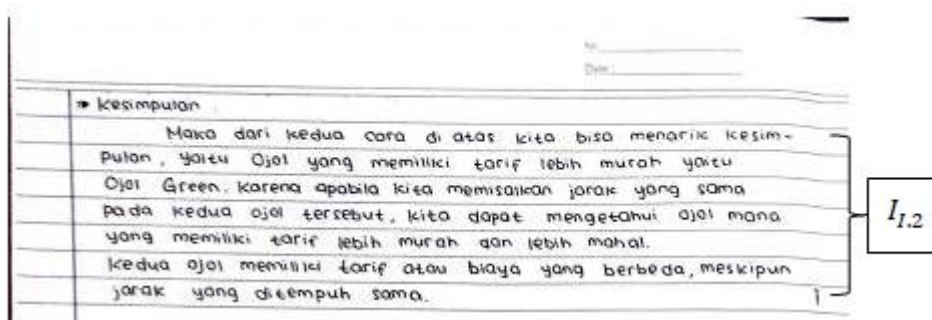 No
Date :
➔ Kesimpulan
Maka dari kedua cara di atas kita bisa menarik kesim-
pulan, yaitu Ojol yang memiliki tarif lebih murah yaitu
Ojol Green. Karena apabila kita memisalkan jarak yang sama
pada kedua ojol tersebut, kita dapat mengetahui ojol mana
yang memiliki tarif lebih murah dan lebih mahal.
Kedua ojol memiliki tarif atau biaya yang berbeda, meskipun
jarak yang ditempuh sama.
I1.2